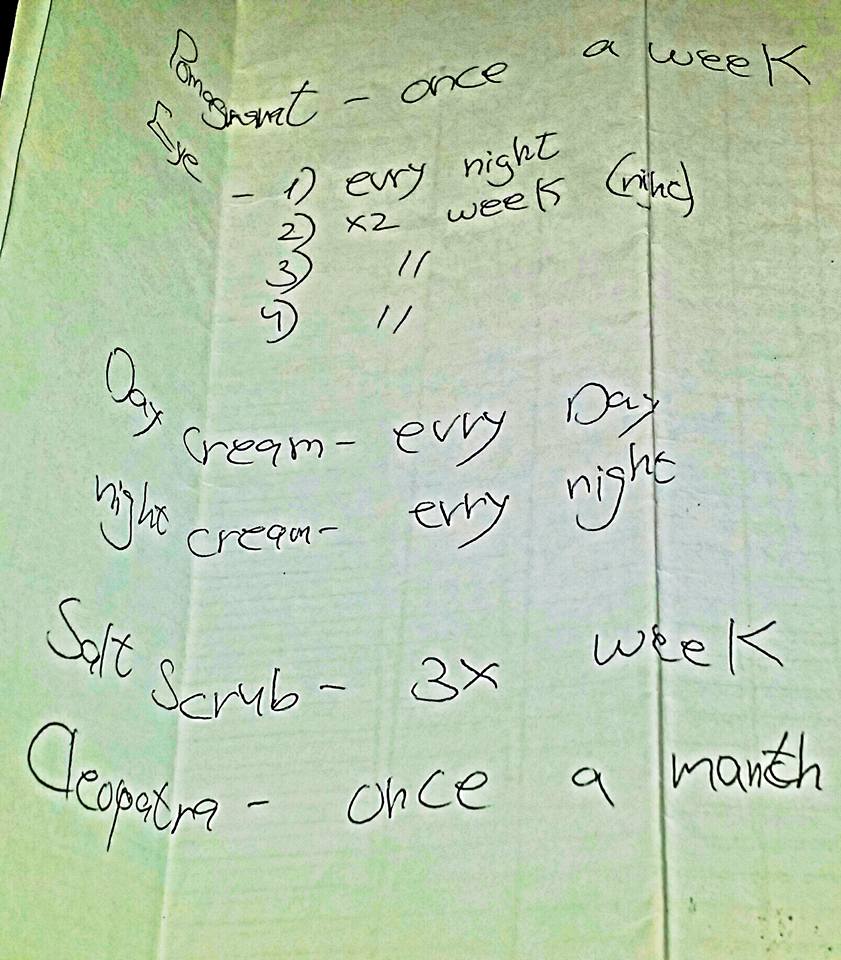 Pomegranat - once a week
Eye - 1) evry night
2) x2 week (night)
3) //
4) //
Day cream - evry Day
night cream - evry night
Salt Scrub - 3x week
Cleopatra - once a manth